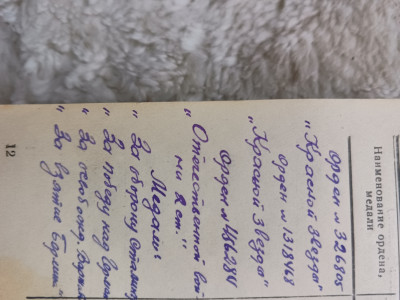 Наименование ордена,
медали
Орден №326805
"Красной звезда"
орден №1318468
"Красной Звезда"
Орден
"Отечественной вой
ны 2 ст."
Медаль
"За оборону Сталинг
"За победу над
"За освобожд.
"За взятие Берлин"
12